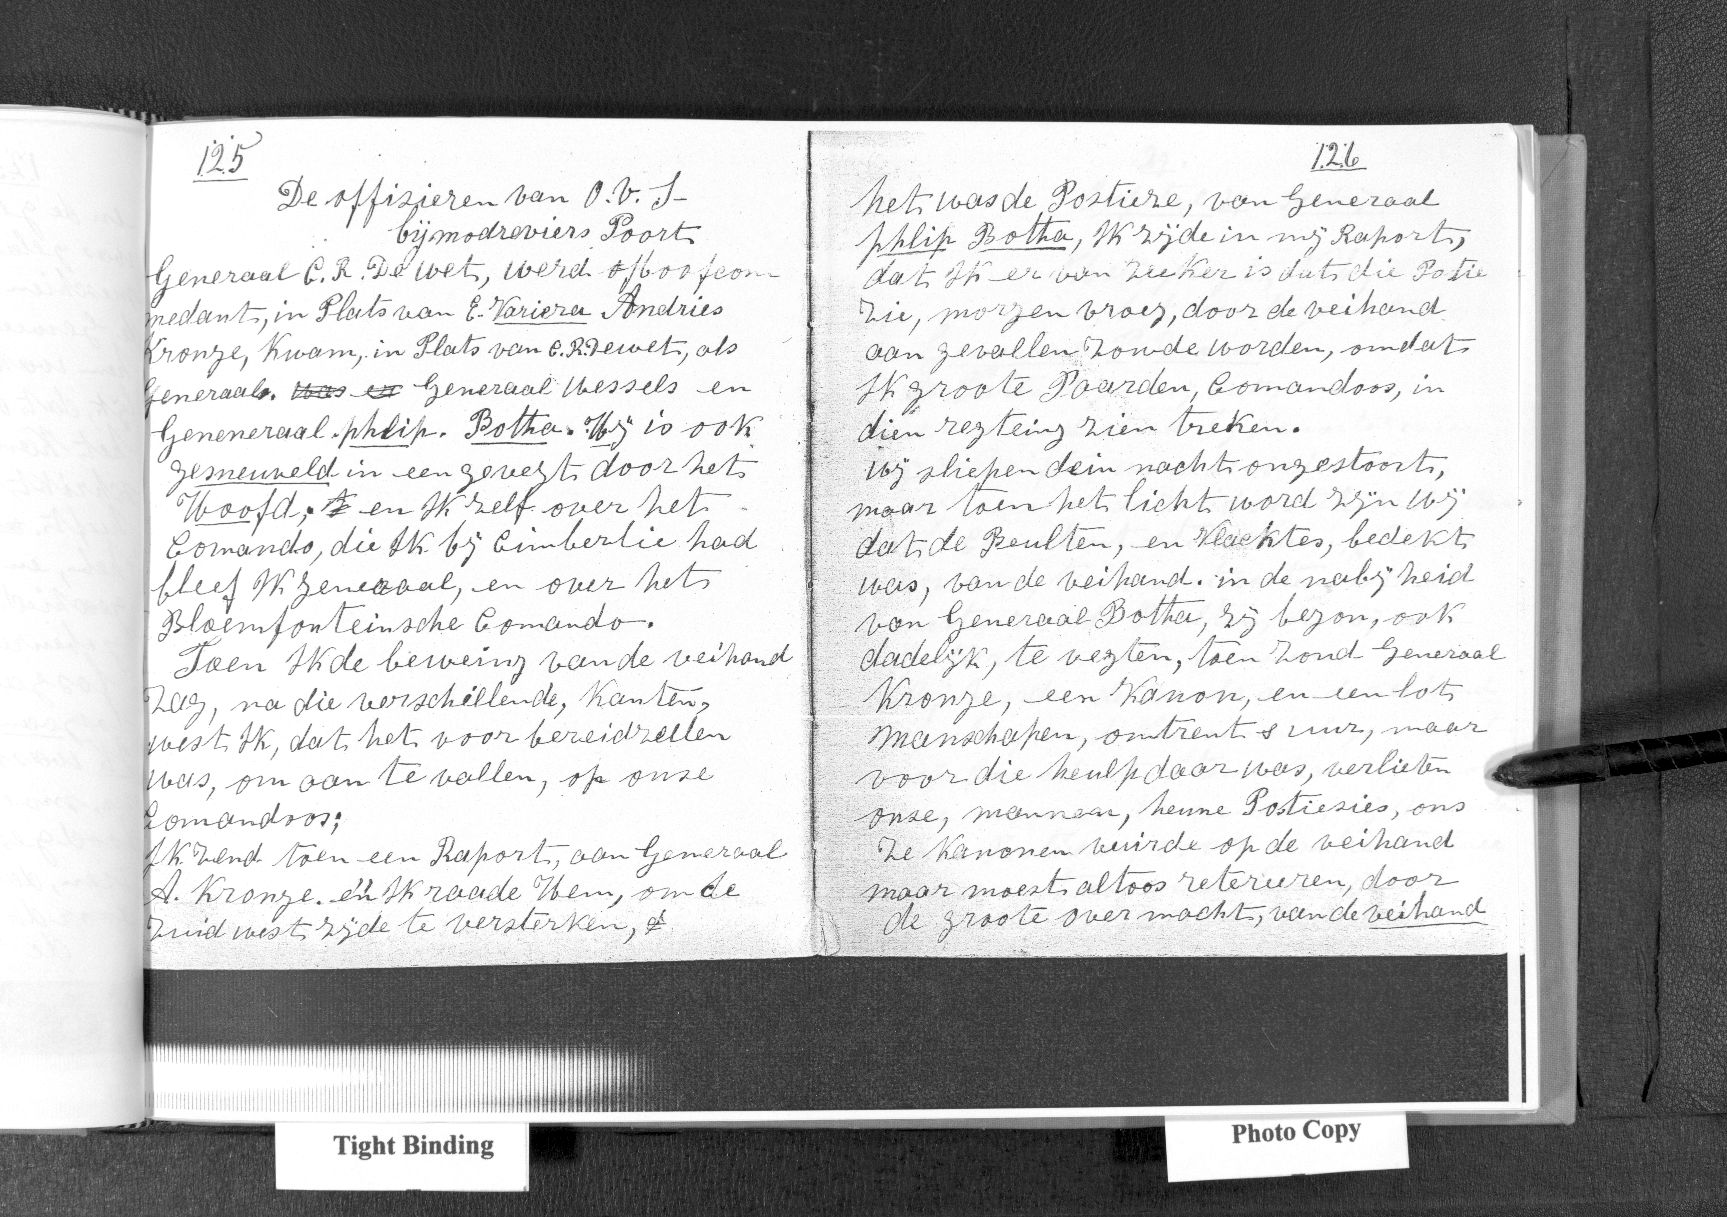 125
De offizieren van O.V.S-
bij modreviers Poort
Generaal C.R. De Wet, werd ofhoofcom-
medant, in Plats van E. Variera Andries
Kronze, Kwam, in Plats van C.R. Dewet, als
Generaal. was en Generaal Wessels en
Geneneraal. phlip. Botha. Hij is ook
zesneuveld in een gevezt door het
Hoofd; en Ik Zelf over het
Comando, die Ik bij Cimberlie had
bleef Ik zeneraal, en over het
Bloemfonteinsche Comando.
Toen Ik de beweinz van de veihand
Zaz, na die verschillende, Kanten,
west Ik, dat het voor bereidzellen
was, om aan te vallen, op onse
Comandoos;
Ik Zend toen een Raport, aan Generaal
A. Kronze. en Ik raade Hem, om de
Zuid west zijde te versterken,
126
het was de Postieze, van Generaal
phlip Botha, Ik zijde in mij Raport,
dat Ik er van Zeeker is dat die Potie
Zie, morzen vroez, door de veihand
aan zevallen Zowde worden, omdat
Ik groote Paarden, Comandoos, in
dien rezteinz zien treken.
wij sliepen dein nacht onzestoort,
maar toen het licht word zijn wij
dat de Beulten, en Vlacktes, bedekt
was, van de veihand. in de nabij heid
van Generaal Botha, zij bezon, ook
dadelijk, te vezten, toen Zond Generaal
Kronze, een Kanon, en een lot
Manschapen, omtrent 8 uur, maar
voor die heulp daar was, verlieten
onse, mannen, heune Postiesies, ons
Ze Kanonen vuirde op de veihand
maar moest altoos retereren, door
de groote over macht, van de veihand
Tight Binding
Photo Copy